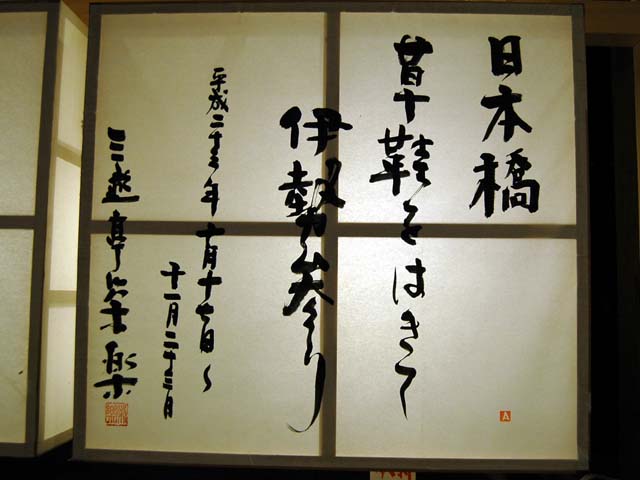 日本橋
草鞋をはきて
伊勢参り
平成二十三年 十月十七日〜
十一月二十三日
三遊亭 楽
A